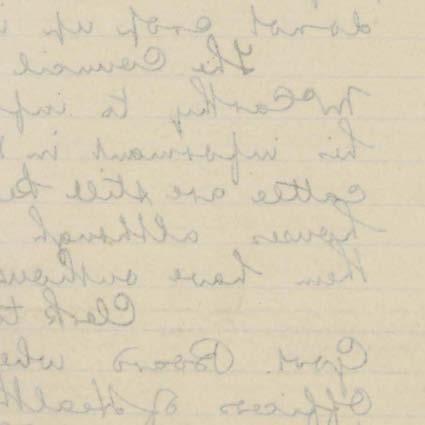 do not crop up i
The Council
McCarthy to inf
his informant in
cattle are still ke
houses although
them have outhous
Clerk t
Govt. Board whe
Officer of Healt